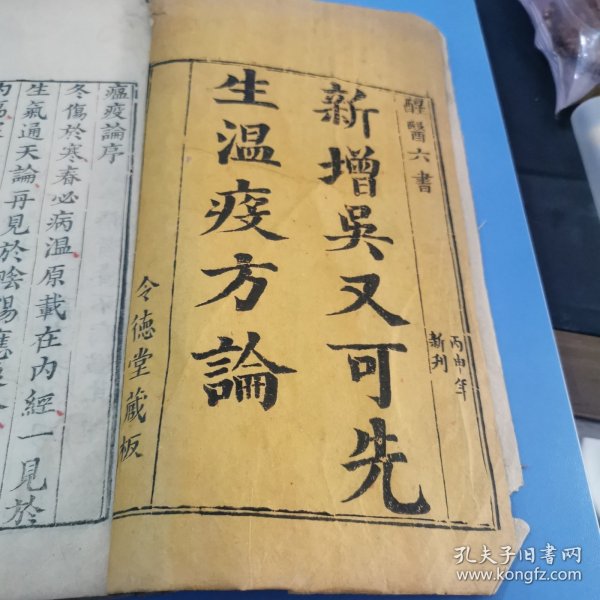 醇醫六書
丙申年
新刋
新增吳又可先
生温疫方論
令德堂藏板
瘟疫論序
冬傷於寒春必病温原載在内經一見於
生氣通天論再見於陰陽應
孔夫子旧书网
www.kongfz.com